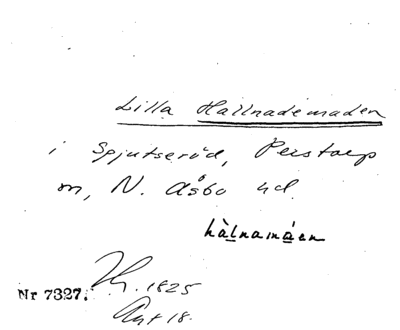 Lilla Hallnademaden
i Spjutseröd, Perstorp
sn, N. Åsbo hd.
hàlnamáen
1825
Nr 7327.
Akt 18.